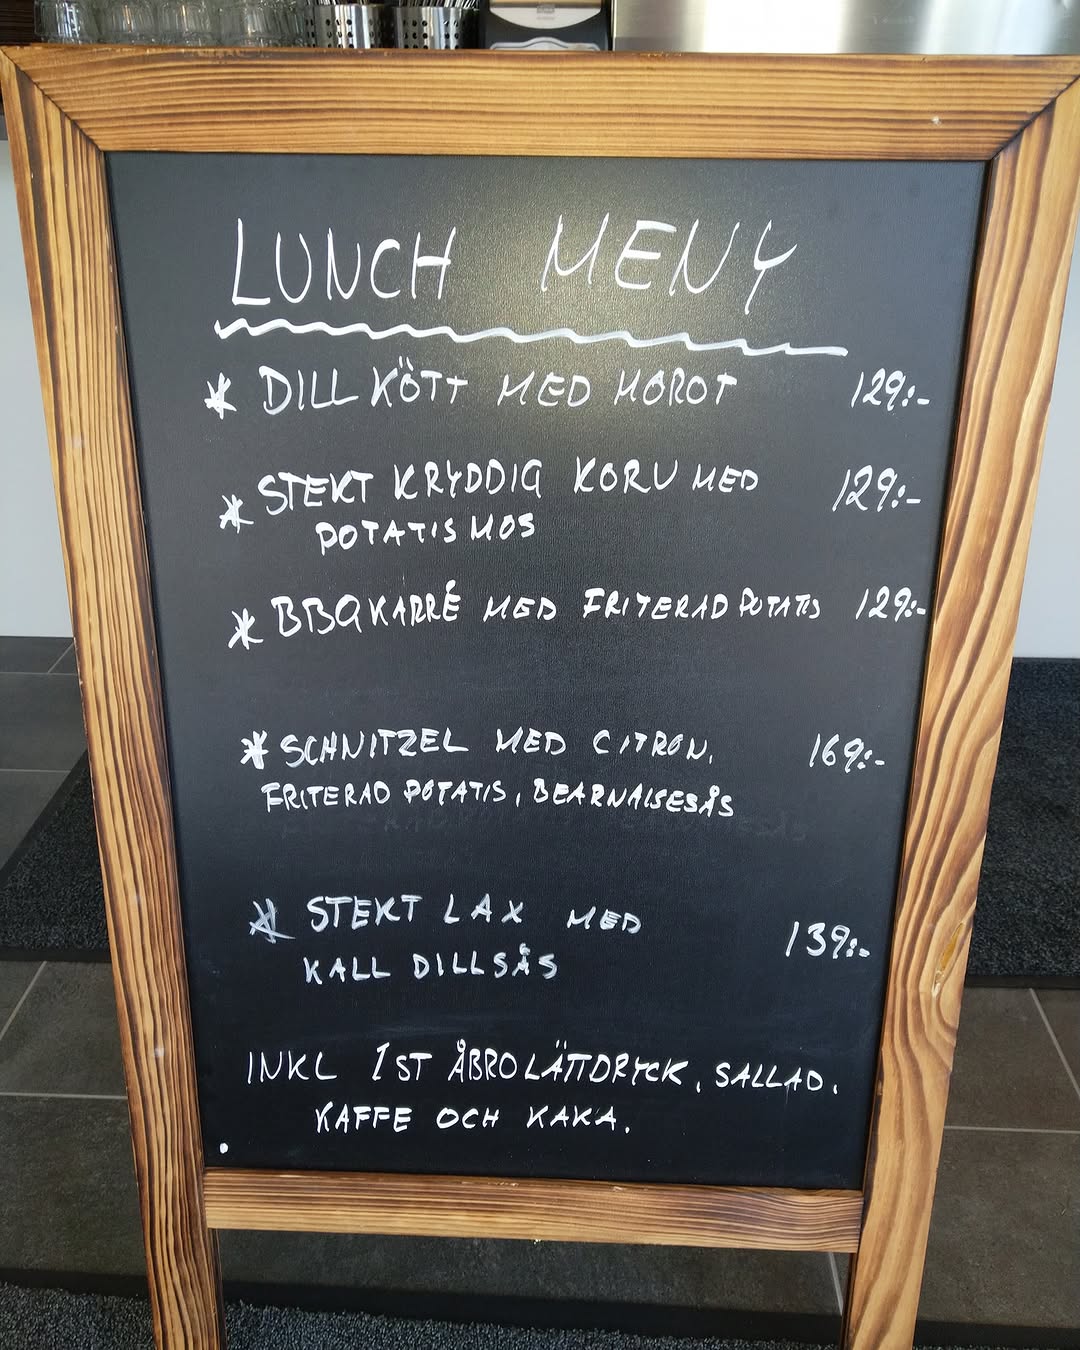 LUNCH MENY
* DILLKÖTT MED MOROT 129:-
* STEKT KRYDDIG KORV MED 129:-
POTATISMOS
* BBQ KARRÉ MED FRITERAD POTATIS 129:-
* SCHNITZEL MED CITRON, 169:-
FRITERAD POTATIS, BEARNAISESÅS
* STEKT LAX MED 139:-
KALL DILLSÅS
INKL 1ST ÅBRO LÄTTDRYCK, SALLAD,
KAFFE OCH KAKA.